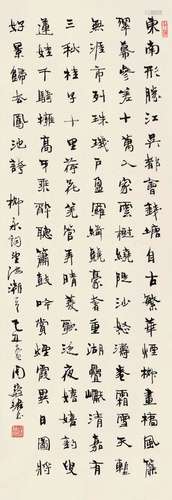 東南形勝江吳都會錢塘自古繁華煙柳畫橋風簾
翠幕參差十萬人家雲樹繞隄沙怒濤卷霜雪天塹
無涯市列珠璣戶盈羅綺競豪奢重湖疊巘清嘉有
三秋桂子十里荷花羌管弄晴菱歌泛夜嬉嬉釣叟
蓮娃千騎擁高牙乘醉聽簫鼓吟賞煙霞異日圖將
好景歸去鳳池誇 柳永詞望海潮 乙丑 周